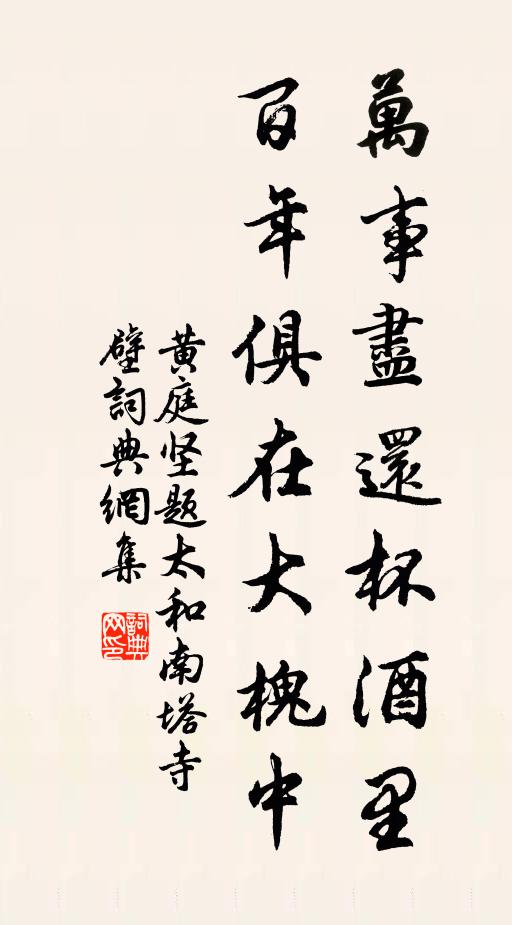 萬事盡還杯酒里
百年俱在大槐中
黄庭坚题太和南塔寺
壁詞典網集
詞典网印